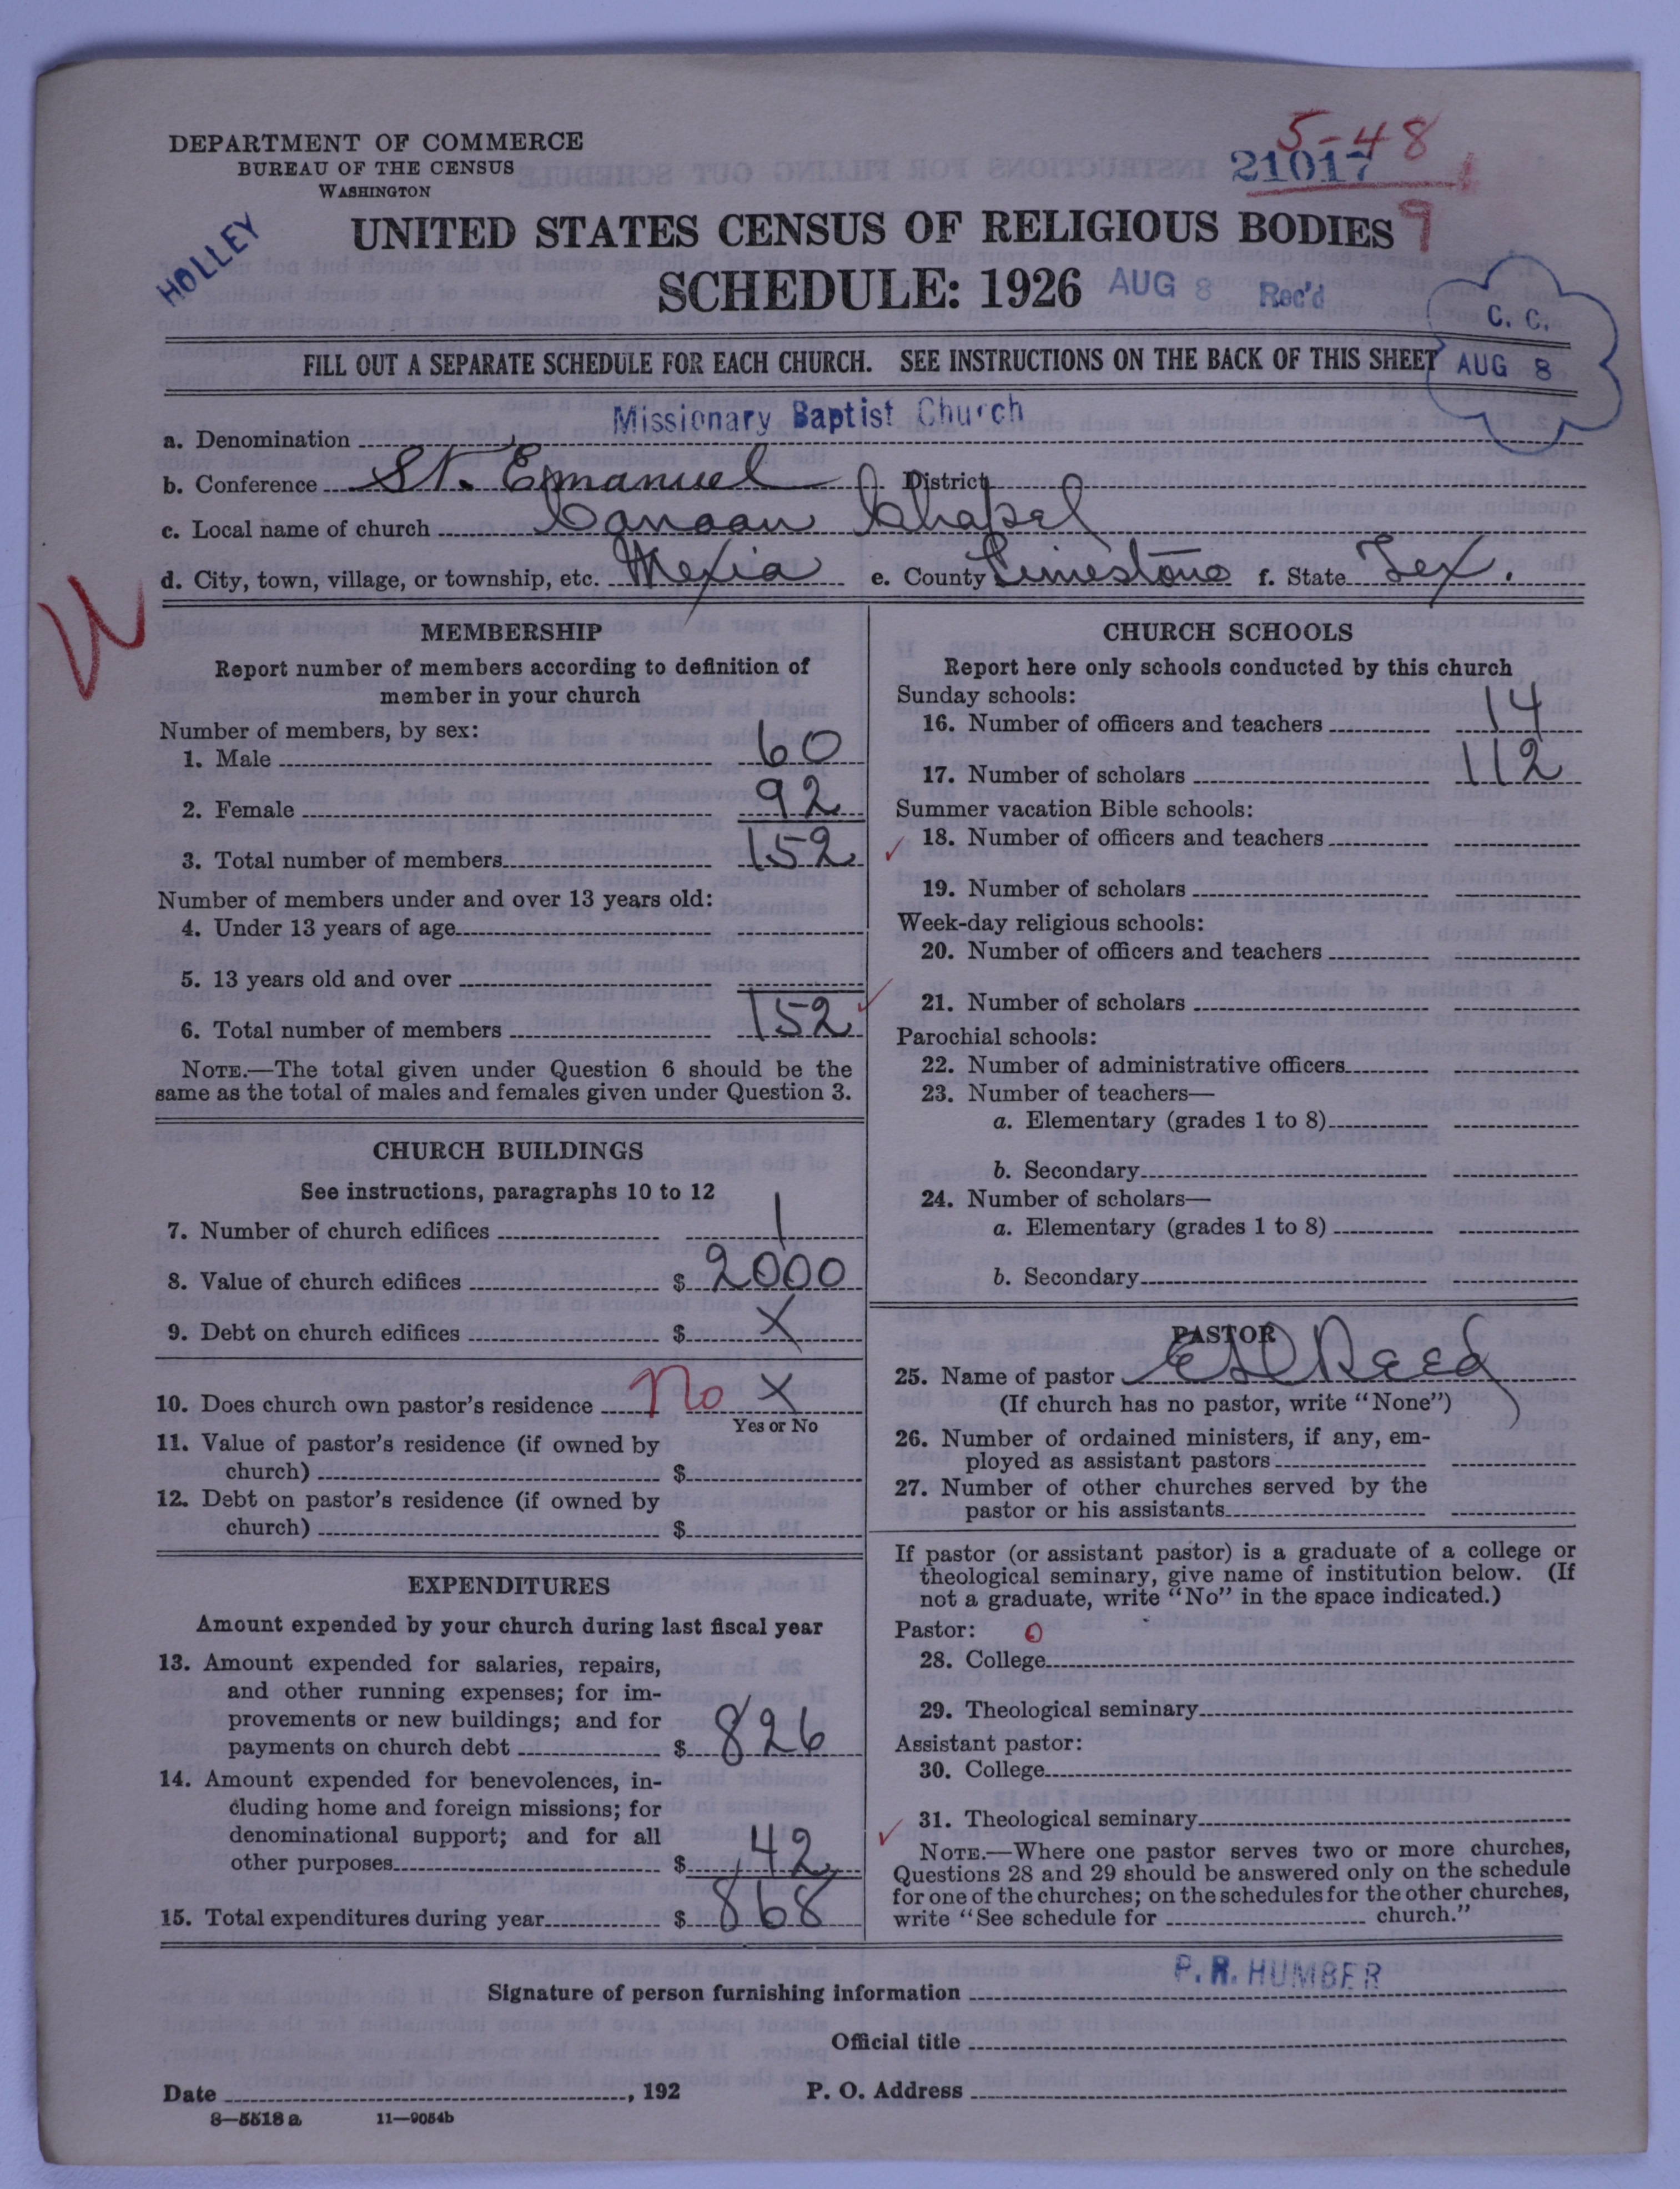 5-48
21017
9
DEPARTMENT OF COMMERCE
BUREAU OF THE CENSUS
WASHINGTON
HOLLEY
UNITED STATES CENSUS OF RELIGIOUS BODIES
SCHEDULE: 1926 AUG 8 Rec'd
C. C.
AUG 8
FILL OUT A SEPARATE SCHEDULE FOR EACH CHURCH. SEE INSTRUCTIONS ON THE BACK OF THIS SHEET
a. Denomination Missionary Baptist Church
b. Conference St. Emanuel District
c. Local name of church Canaan Chapel
d. City, town, village, or township, etc. Mexia e. County Limestone f. State Tex.
MEMBERSHIP
Report number of members according to definition of
member in your church
Number of members, by sex:
1. Male 60
2. Female 92
3. Total number of members 152
Number of members under and over 13 years old:
4. Under 13 years of age
5. 13 years old and over
6. Total number of members 152
NOTE.—The total given under Question 6 should be the
same as the total of males and females given under Question 3.
CHURCH BUILDINGS
See instructions, paragraphs 10 to 12
7. Number of church edifices 1
8. Value of church edifices $ 2000
9. Debt on church edifices $ X
10. Does church own pastor's residence No X
Yes or No
11. Value of pastor's residence (if owned by
church) $
12. Debt on pastor's residence (if owned by
church) $
EXPENDITURES
Amount expended by your church during last fiscal year
13. Amount expended for salaries, repairs,
and other running expenses; for im-
provements or new buildings; and for
payments on church debt $ 826
14. Amount expended for benevolences, in-
cluding home and foreign missions; for
denominational support; and for all
other purposes $ 42
15. Total expenditures during year $ 868
CHURCH SCHOOLS
Report here only schools conducted by this church
Sunday schools:
16. Number of officers and teachers 14
17. Number of scholars 112
Summer vacation Bible schools:
18. Number of officers and teachers
19. Number of scholars
Week-day religious schools:
20. Number of officers and teachers
21. Number of scholars
Parochial schools:
22. Number of administrative officers
23. Number of teachers—
a. Elementary (grades 1 to 8)
b. Secondary
24. Number of scholars—
a. Elementary (grades 1 to 8)
b. Secondary
PASTOR
25. Name of pastor Reed
(If church has no pastor, write "None")
26. Number of ordained ministers, if any, em-
ployed as assistant pastors
27. Number of other churches served by the
pastor or his assistants
If pastor (or assistant pastor) is a graduate of a college or
theological seminary, give name of institution below. (If
not a graduate, write "No" in the space indicated.)
Pastor: 0
28. College
29. Theological seminary
Assistant pastor:
30. College
31. Theological seminary
NOTE.—Where one pastor serves two or more churches,
Questions 28 and 29 should be answered only on the schedule
for one of the churches; on the schedules for the other churches,
write "See schedule for church."
Signature of person furnishing information P. R. HUMBER
Official title
Date , 192 P. O. Address
8—5518 a 11—9054b